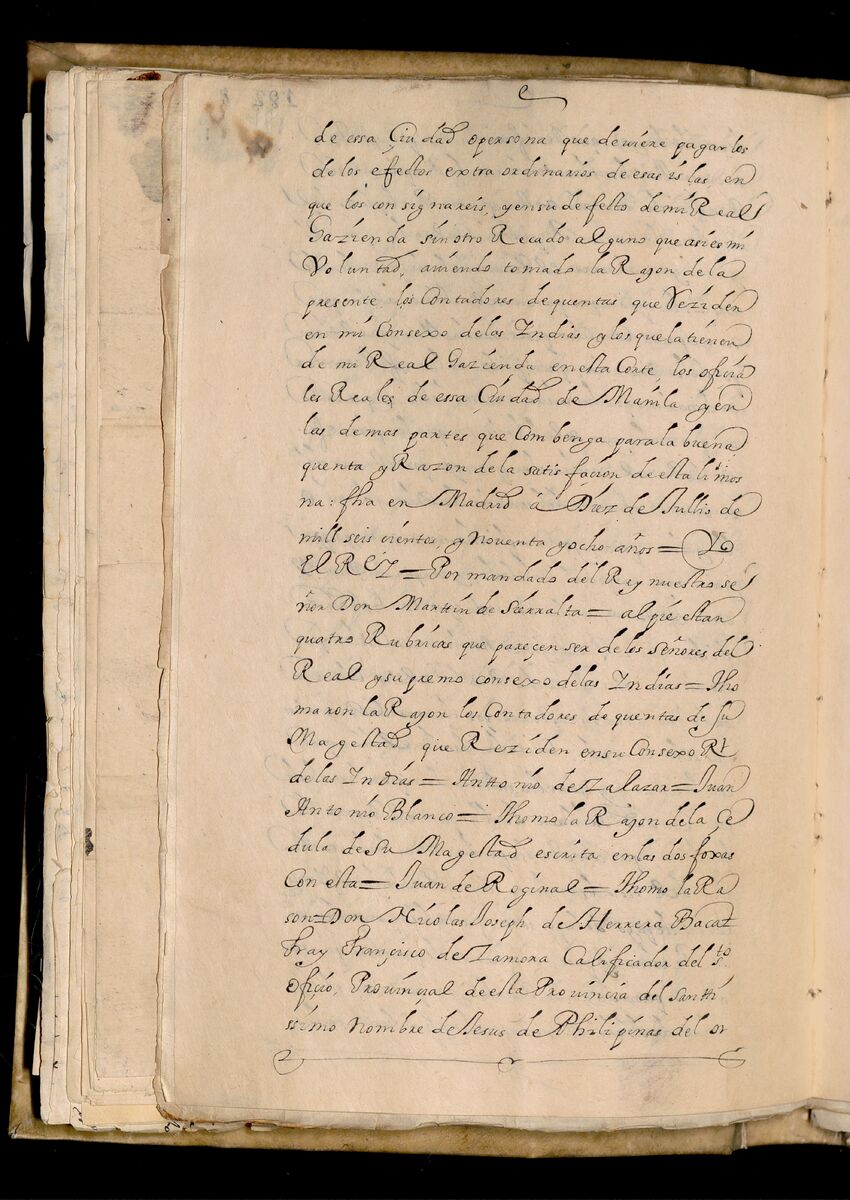 de essa Çiudad opersona que deviere pagarlos
de los efectos extra ordinarios de esas islas, en
que los consignareis, y ensu defecto demi Real
Hazienda sin otro Recado alguno que asi es mi
Voluntad, aviendo tomado la Razon dela
presente los Contadores de quentas que Reziden
en mi Consexo delas Indias y los quela tienen
de mi Real Hazienda en esta Corte los ofiçia
les Reales de essa Çiudad de Manila y en
las demas partes que Combenga para la buena
quenta y Razon dela satisfaçion de esta limos
na: fha en Madrid à Diez de Jullio de
mill seis çientos y Noventa y ocho años = Yo
El REZ = Por mandado del Rey nuestro se
ñor Don Marttin de Sierralta = al pie estan
quatro Rubricas que pareçen ser de los Señores del
Real y supremo consexo delas Indias = tho
maron la Razon los Contadores de quentas de su
Magestad que Reziden ensu Consexo Rl
delas Indias = Antto nio de Zalazar = Juan
Antonio Blanco = thomo la Razon dela Çe
dula de Su Magestad escrita enlas dos foxas
Con esta = Juan de Roginal = thomo la Ra
son = Don Nicolas Joseph de Herrera
Fray Françisco de Zamora Calificador del sto
ofiçio, Provinçial de esta Provincia del santti
ssimo Nombre de Jesus de Philipinas del or